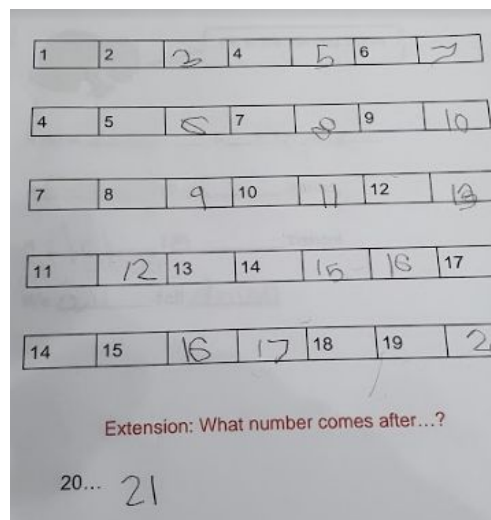 1 2 3 4 5 6 7
4 5 6 7 8 9 10
7 8 9 10 11 12 13
11 12 13 14 15 16 17
14 15 16 17 18 19 2
Extension: What number comes after...?
20... 21